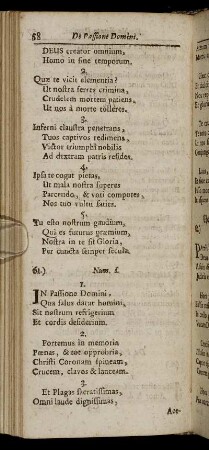 58 De Passione Domini.
DEUS creator omnium,
Homo in fine temporum.
2.
Quæ te vicit clementia?
Ut nostra ferres crimina,
Crudelem mortem patiens,
Ut nos à morte tolleres.
3.
Inferni claustra penetrans,
Tuos captivos redimens,
Victor triumpho nobilis
Ad dextram patris resides.
4.
Ipsa te cogat pietas,
Ut mala nostra superes
Parcendo, & voti compotes,
Nos tuo vultu saties.
5.
Tu esto nostrum gaudium,
Qui es futurus præmium,
Nostra in te sit Gloria,
Per cuncta semper secula.
61.) Num. 1.
1.
IN Passione Domini,
Qua salus datur homini,
Sit nostrum refrigerium
Et cordis desiderium.
2.
Portemus in memoria
Pœnas, & tot opprobria,
Christi Coronam spineam,
Crucem, clavos & lanceam.
3.
Et Plagas Sacratissimas,
Omni laude dignissimas,
Ace-